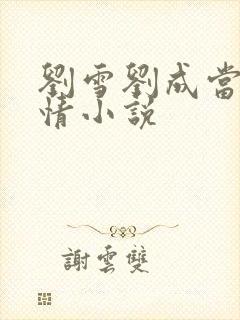 劉雪劉成當
情小説
謝雲雙